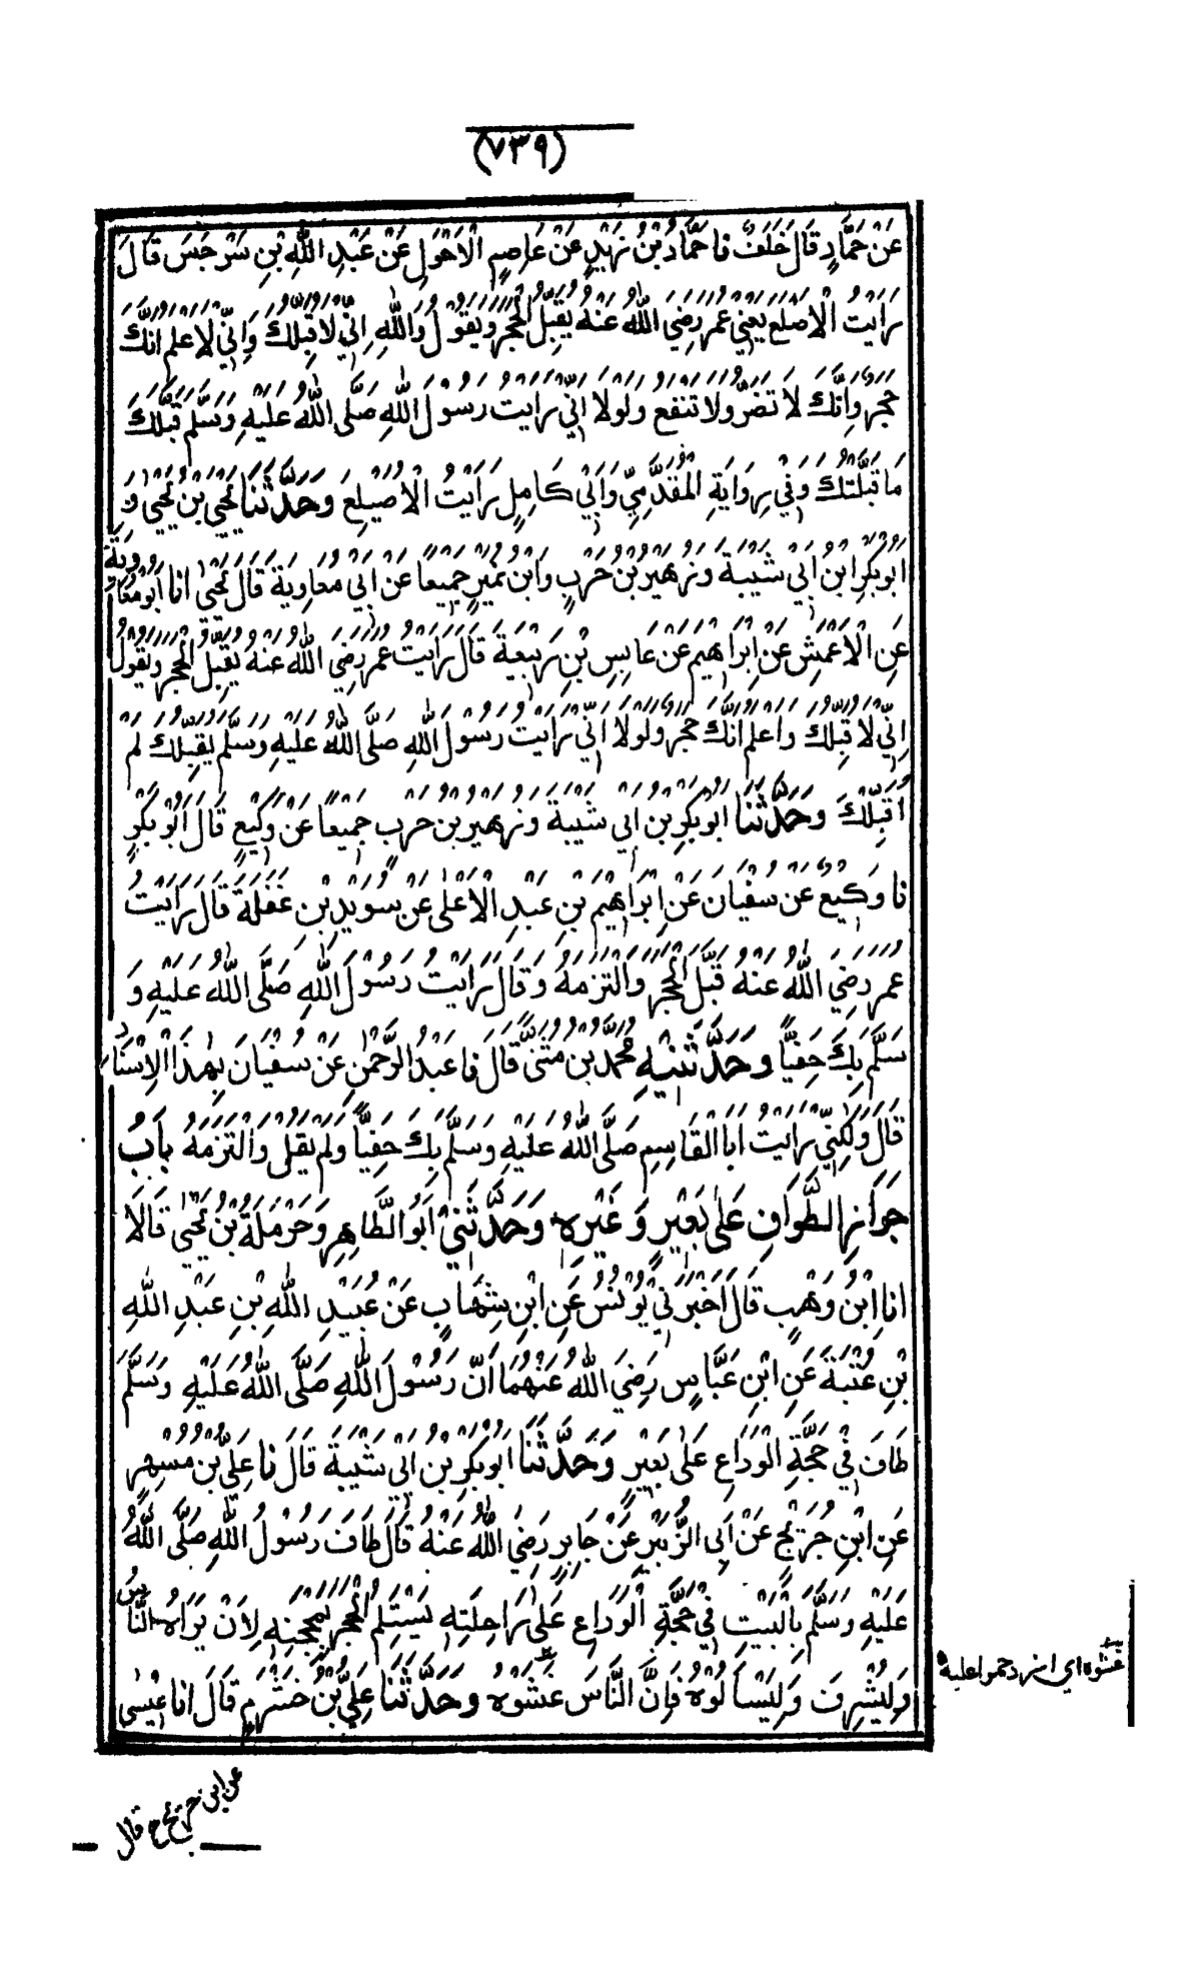 (٧٣٩)
عَنْ حَمَّادٍ قَالَ خَلَفٌ نا حَمَّادُ بْنُ زَيْدٍ عَنْ عَاصِمٍ الْاَحْوَلِ عَنْ عَبْدِ اللهِ بْنِ سَرْجَسَ قَالَ
رَاَيْتُ الْاَصْلَعَ يَعْنِي عُمَرَ رَضِيَ اللهُ عَنْهُ يُقَبِّلُ الْحَجَرَ وَيَقُوْلُ وَاللهِ اِنِّيْ لَاُقَبِّلُكَ وَاِنِّيْ لَاَعْلَمُ اَنَّكَ
حَجَرٌ وَاَنَّكَ لَا تَضُرُّ وَلَا تَنْفَعُ وَلَوْلَا اَنِّيْ رَاَيْتُ رَسُوْلَ اللهِ صَلَّى اللهُ عَلَيْهِ وَسَلَّمَ قَبَّلَكَ
مَا قَبَّلْتُكَ وَفِيْ رِوَايَةِ الْمُقَدَّمِيِّ وَاَبِيْ كَامِلٍ رَاَيْتُ الْاُصَيْلِعَ وَحَدَّثَنَا يَحْيَى بْنُ يَحْيٰى وَ
اَبُوْ بَكْرِ ابْنُ اَبِيْ شَيْبَةَ وَزُهَيْرُ بْنُ حَرْبٍ وَابْنُ نُمَيْرٍ جَمِيْعًا عَنْ اَبِيْ مُعَاوِيَةَ قَالَ يَحْيٰى انا اَبُوْ مُعَاوِيَةَ
عَنِ الْاَعْمَشِ عَنْ اِبْرَاهِيْمَ عَنْ عَابِسِ بْنِ رَبِيْعَةَ قَالَ رَاَيْتُ عُمَرَ رَضِيَ اللهُ عَنْهُ يُقَبِّلُ الْحَجَرَ وَيَقُوْلُ
اِنِّيْ لَاُقَبِّلُكَ وَاَعْلَمُ اَنَّكَ حَجَرٌ وَلَوْلَا اَنِّيْ رَاَيْتُ رَسُوْلَ اللهِ صَلَّى اللهُ عَلَيْهِ وَسَلَّمَ يُقَبِّلُكَ لَمْ
اُقَبِّلْكَ وَحَدَّثَنَا اَبُوْ بَكْرِ بْنُ اَبِيْ شَيْبَةَ وَزُهَيْرُ بْنُ حَرْبٍ جَمِيْعًا عَنْ وَكِيْعٍ قَالَ اَبُوْ بَكْرٍ
نا وَكِيْعٌ عَنْ سُفْيَانَ عَنْ اِبْرَاهِيْمَ بْنِ عَبْدِ الْاَعْلٰى عَنْ سُوَيْدِ بْنِ غَفَلَةَ قَالَ رَاَيْتُ
عُمَرَ رَضِيَ اللهُ عَنْهُ قَبَّلَ الْحَجَرَ وَالْتَزَمَهُ وَقَالَ رَاَيْتُ رَسُوْلَ اللهِ صَلَّى اللهُ عَلَيْهِ وَ
سَلَّمَ بِكَ حَفِيًّا وَحَدَّثَنِيْهِ مُحَمَّدُ بْنُ مُثَنًّى قَالَ نا عَبْدُ الرَّحْمٰنِ عَنْ سُفْيَانَ بِهٰذَا الْاِسْنَادِ
قَالَ وَلٰكِنِّيْ رَاَيْتُ اَبَا الْقَاسِمِ صَلَّى اللهُ عَلَيْهِ وَسَلَّمَ بِكَ حَفِيًّا وَلَمْ يَقُلْ وَالْتَزَمَهُ بَابُ
جَوَازِ الطَّوَافِ عَلٰى بَعِيْرٍ وَغَيْرِهٖ وَحَدَّثَنِيْ اَبُو الطَّاهِرِ وَحَرْمَلَةُ بْنُ يَحْيٰى قَالَا
انا ابْنُ وَهْبٍ قَالَ اَخْبَرَنِيْ يُوْنُسُ عَنِ ابْنِ شِهَابٍ عَنْ عُبَيْدِ اللهِ بْنِ عَبْدِ اللهِ
بْنِ عُتْبَةَ عَنِ ابْنِ عَبَّاسٍ رَضِيَ اللهُ عَنْهُمَا اَنَّ رَسُوْلَ اللهِ صَلَّى اللهُ عَلَيْهِ وَسَلَّمَ
طَافَ فِيْ حَجَّةِ الْوَدَاعِ عَلٰى بَعِيْرٍ وَحَدَّثَنَا اَبُوْ بَكْرِ بْنُ اَبِيْ شَيْبَةَ قَالَ نا عَلِيُّ بْنُ مُسْهِرٍ
عَنِ ابْنِ جُرَيْجٍ عَنْ اَبِى الزُّبَيْرِ عَنْ جَابِرٍ رَضِيَ اللهُ عَنْهُ قَالَ طَافَ رَسُوْلُ اللهِ صَلَّى اللهُ
عَلَيْهِ وَسَلَّمَ بِالْبَيْتِ فِيْ حَجَّةِ الْوَدَاعِ عَلٰى رَاحِلَتِهٖ يَسْتَلِمُ الْحَجَرَ بِمِحْجَنِهٖ لِاَنْ يَرَاهُ النَّاسُ
وَلِيُشْرِفَ وَلِيَسْاَلُوْهُ فَاِنَّ النَّاسَ غَشُوْهُ وَحَدَّثَنَا عَلِيُّ بْنُ خَشْرَمٍ قَالَ انا عِيْسٰى
غشوه اي ازدحموا عليه
عن ابن جريج ح قال